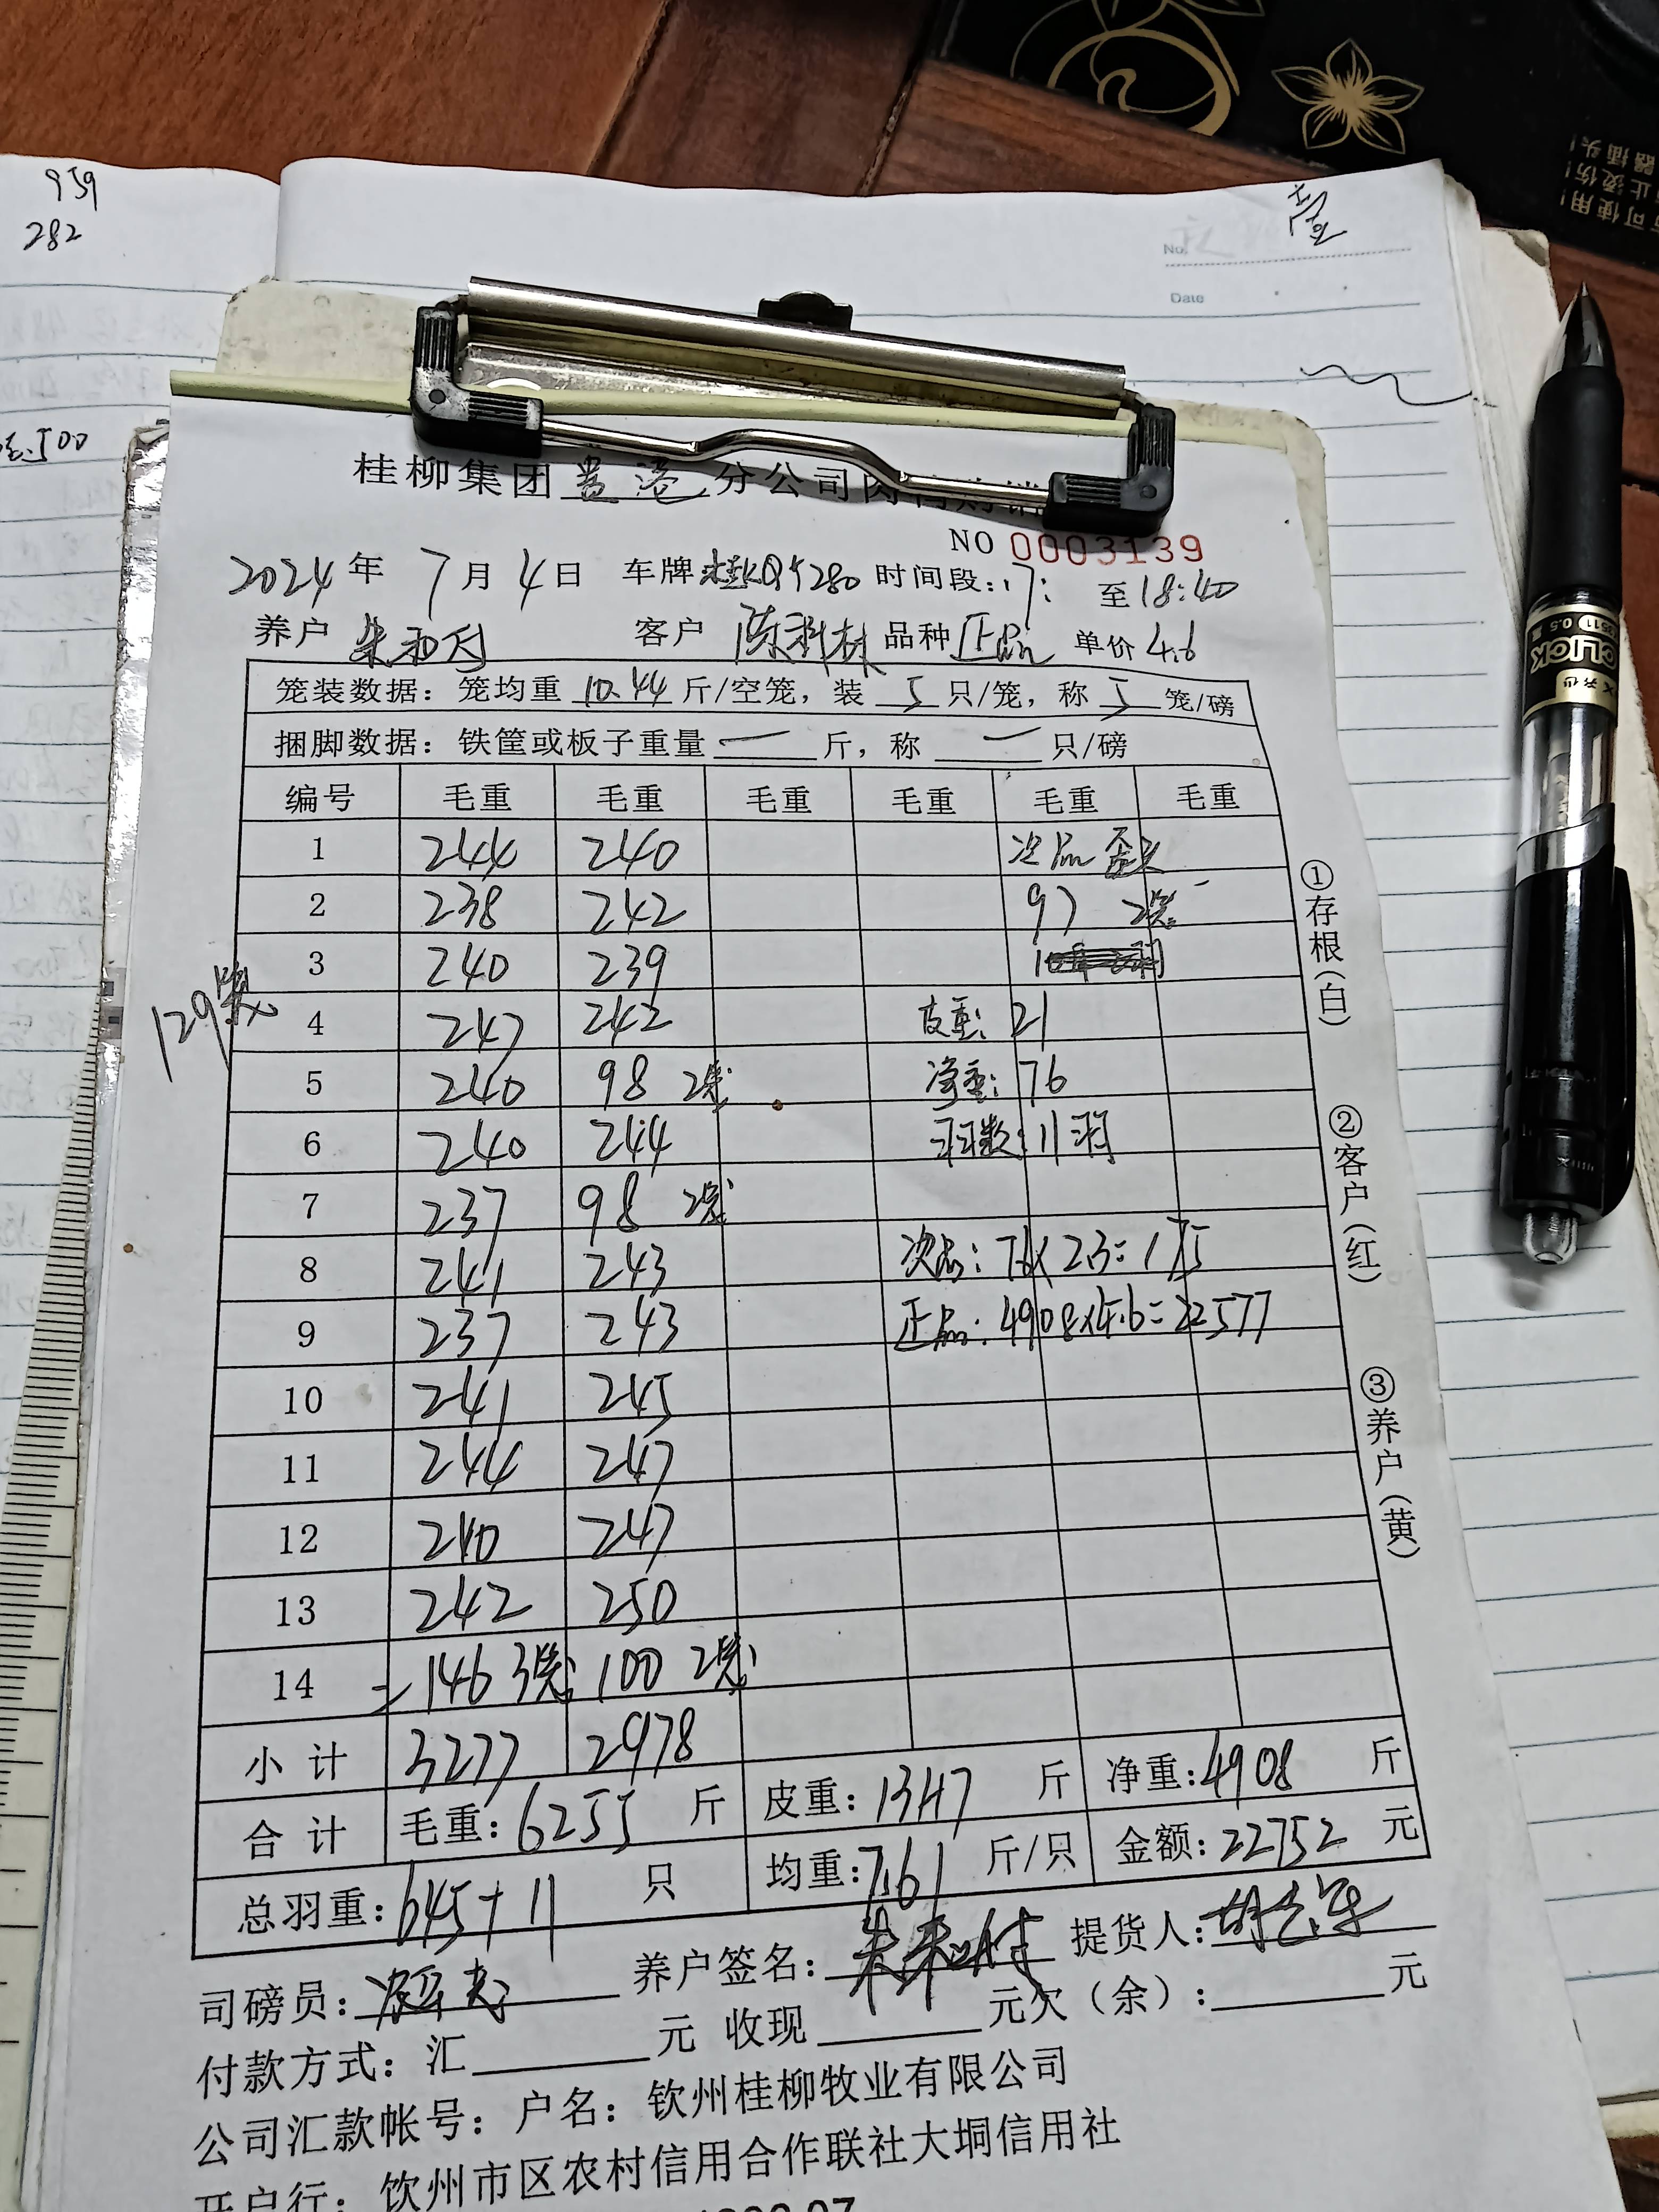 959
282
壹
No.
Date
500
桂柳集团 贵港 分公司肉
NO 0003139
2024年 7月4日 车牌 桂KQY280 时间段: 17: 至18:40
养户 客户 品种 正品 单价 4.6
笼装数据: 笼均重 10.44 斤/空笼, 装 5 只/笼, 称 5 笼/磅
捆脚数据: 铁筐或板子重量 一 斤, 称 一 只/磅
编号 毛重 毛重 毛重 毛重 毛重 毛重
1 244 240 次品 歪头
2 238 242 97 2笼
3 240 239
129笼
4 247 242 皮重: 21
5 240 98 2笼 净重: 76
6 240 244 羽数: 11羽
7 237 98 2笼
8 241 243 次品: 76×2.3=175
9 237 243 正品: 4908×4.6=22577
10 241 245
11 244 247
12 240 247
13 242 250
14 146 3笼 100 2笼
小计 3277 2978
合计 毛重: 6255 斤 皮重: 1347 斤 净重: 4908 斤
总羽重: 645+11 只 均重: 7.61 斤/只 金额: 22752 元
司磅员: 养户签名: 提货人:
付款方式: 汇 元 收现 元欠(余): 元
公司汇款帐号: 户名: 钦州桂柳牧业有限公司
开户行: 钦州市区农村信用合作联社大垌信用社
①存根(白)
②客户(红)
③养户(黄)
CLICK
0.5